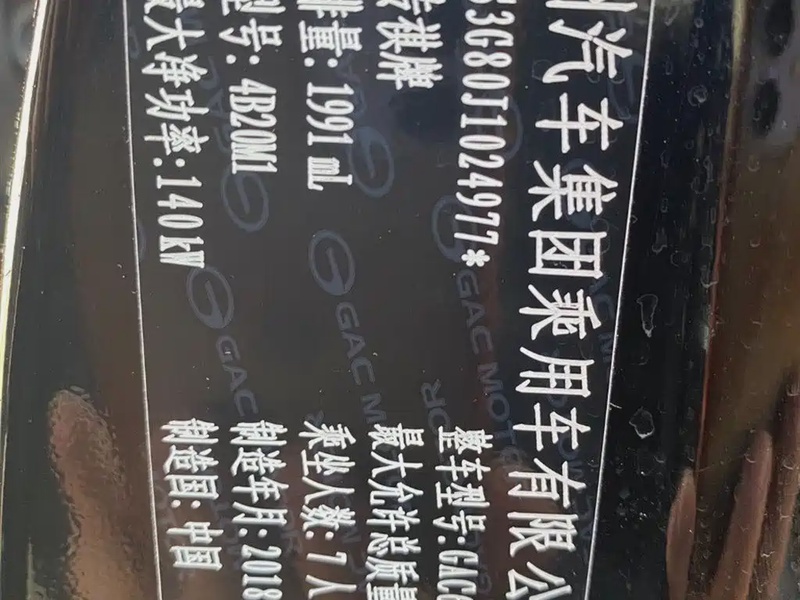 汽车集团乘用车有限公
3G80J1024977* 整车型号:GAC
祺牌 最大允许总质量
排量: 1991 mL 乘坐人数: 7 人
型号: 4B20M1 制造年月: 2018
最大净功率: 140kW 制造国: 中国
GAC MOTOR
GAC MOTOR
GAC